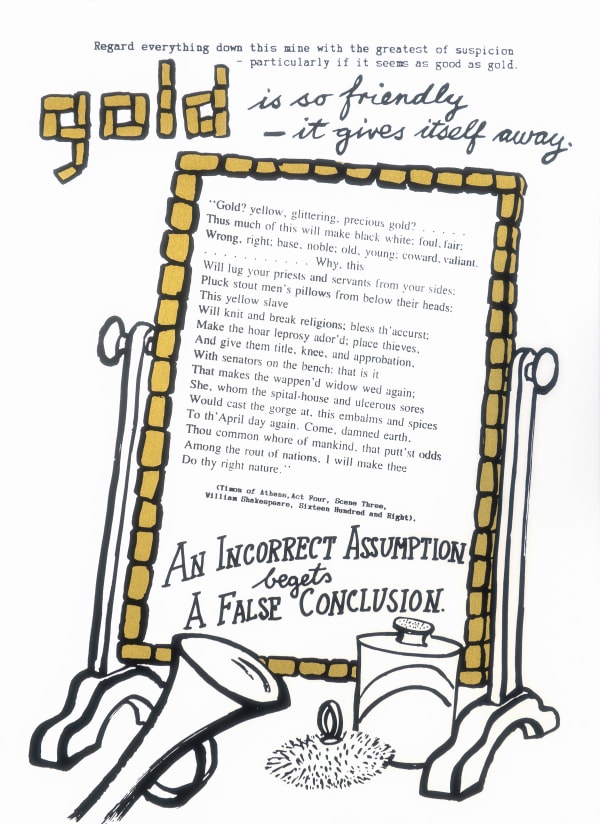 Regard everything down this mine with the greatest of suspicion
- particularly if it seems as good as gold.
gold is so friendly
– it gives itself away.
"Gold? yellow, glittering, precious gold? . . . . .
Thus much of this will make black white; foul, fair;
Wrong, right; base, noble; old, young; coward, valiant.
. . . . . . . . . . . Why, this
Will lug your priests and servants from your sides;
Pluck stout men's pillows from below their heads:
This yellow slave
Will knit and break religions; bless th'accurst;
Make the hoar leprosy ador'd; place thieves,
And give them title, knee, and approbation,
With senators on the bench: that is it
That makes the wappen'd widow wed again;
She, whom the spital-house and ulcerous sores
Would cast the gorge at, this embalms and spices
To th'April day again. Come, damned earth,
Thou common whore of mankind, that putt'st odds
Among the rout of nations, I will make thee
Do thy right nature."
(Timon of Athens,Act Four, Scene Three,
William Shakespeare, Sixteen Hundred and Eight).
AN INCORRECT ASSUMPTION
begets
A FALSE CONCLUSION.